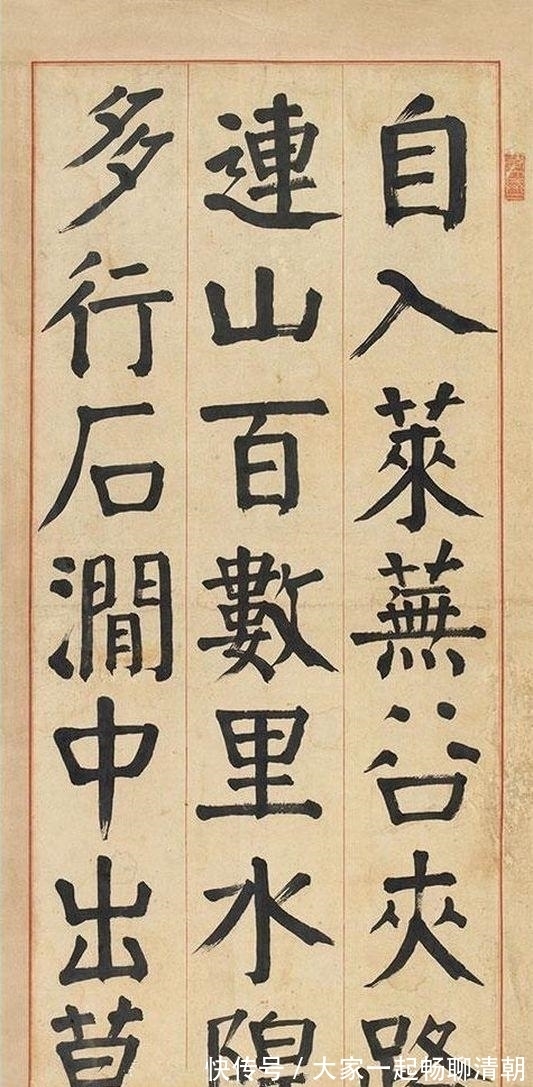 自入萊蕪谷夾路
連山百數里水隍
多行石澗中出草
快传号/大家一起畅聊清朝